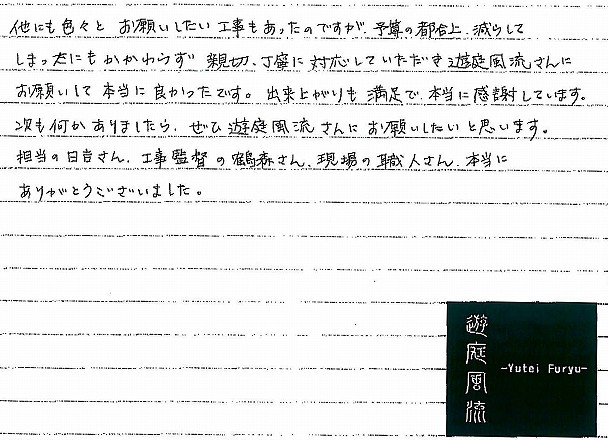 他にも色々と お願いしたい工事もあったのですが、予算の都合上、減らして
しまったにもかかわらず 親切、丁寧に 対応していただき 遊庭風流さんに
お願いして 本当に 良かったです。 出来上がりも 満足で、本当に 感謝しています。
次も何かありましたら、ぜひ 遊庭風流 さんに お願いしたいと思います。
担当の日吉さん、工事監督 の さん、現場の 職人さん、本当に
ありがとうございました。
遊庭風流
-Yutei Furyu-